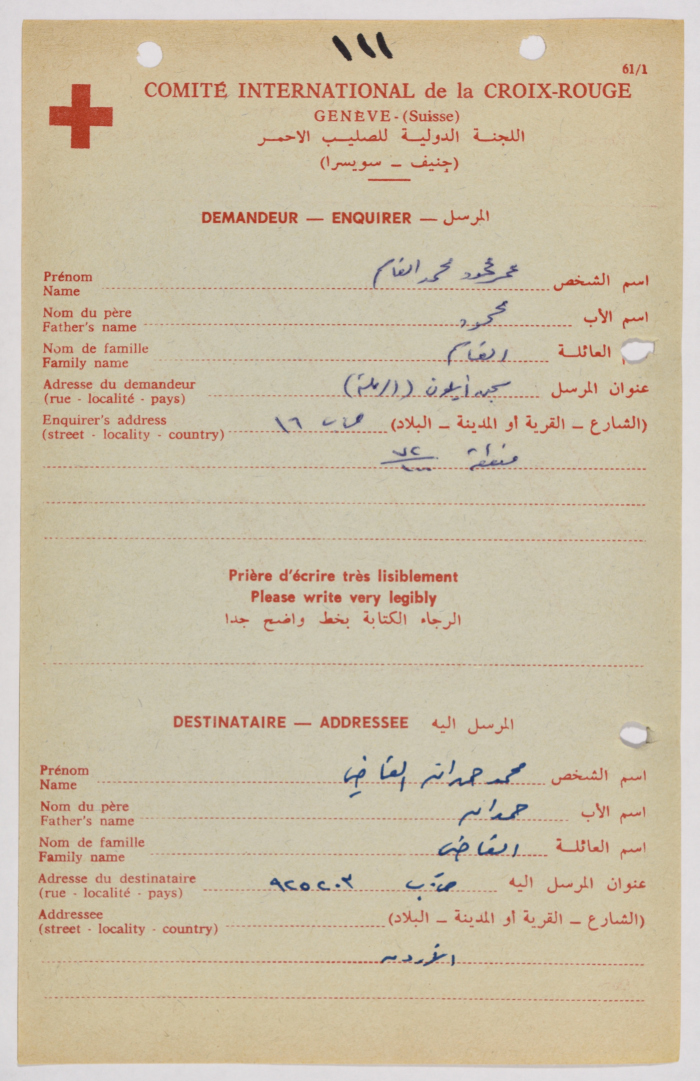 ١١١
61/1
COMITÉ INTERNATIONAL de la CROIX-ROUGE
GENÈVE - (Suisse)
اللجنة الدولية للصليب الاحمر
(جنيف – سويسرا)
DEMANDEUR — ENQUIRER — المرسل
Prénom
Name
اسم الشخص عمر محمود محمد القاسم
Nom du père
Father's name
اسم الأب محمود
Nom de famille
Family name
العائلة القاسم
Adresse du demandeur
(rue - localité - pays)
عنوان المرسل سجن أيلون (الرملة)
Enquirer's address
(street - locality - country)
(الشارع – القرية أو المدينة – البلاد) ١٦
منطقة ٧٢/١٠٠
Prière d'écrire très lisiblement
Please write very legibly
الرجاء الكتابة بخط واضح جدا
DESTINATAIRE — ADDRESSEE المرسل اليه
Prénom
Name
اسم الشخص محمد حمدان القاضي
Nom du père
Father's name
اسم الأب حمدان
Nom de famille
Family name
اسم العائلة القاضي
Adresse du destinataire
(rue - localité - pays)
عنوان المرسل اليه ص.ب ٩٢٥٢٠٣
Addressee
(street - locality - country)
(الشارع – القرية أو المدينة – البلاد)
الأردن